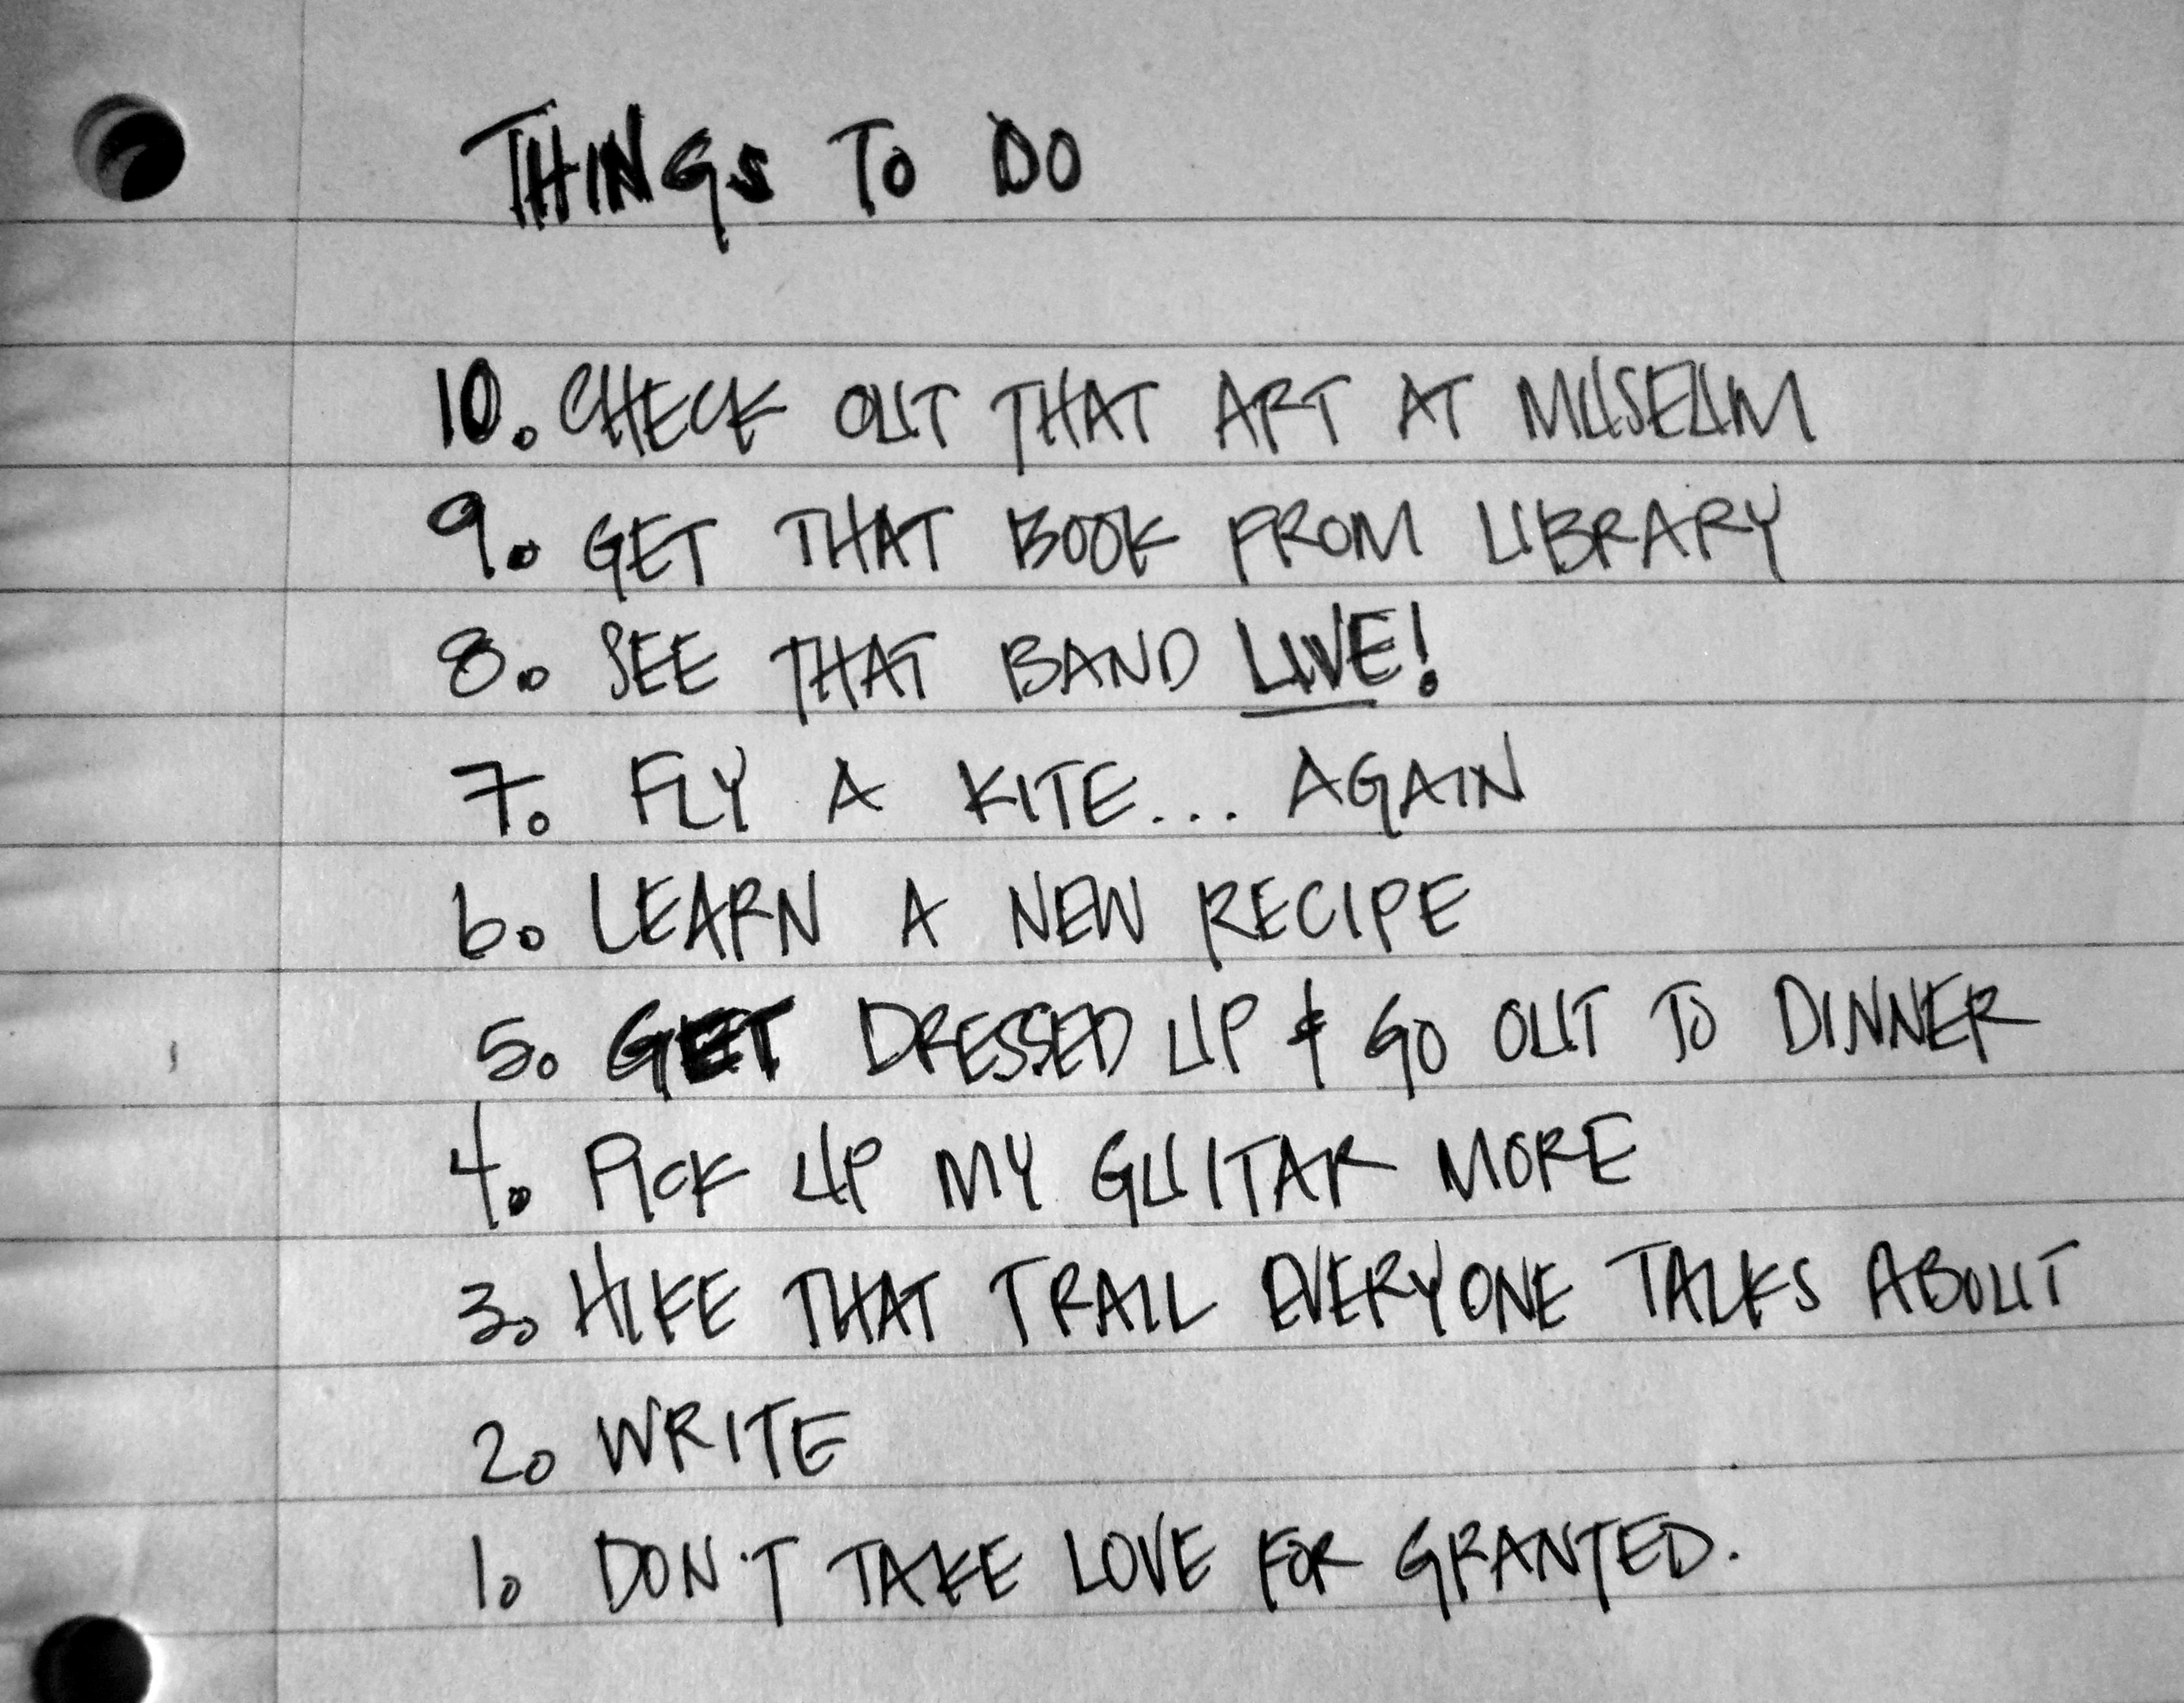 THINGS TO DO
10. CHECK OUT THAT ART AT MUSEUM
9. GET THAT BOOK FROM LIBRARY
8. SEE THAT BAND LIVE!
7. FLY A KITE... AGAIN
6. LEARN A NEW RECIPE
5. GET DRESSED UP & GO OUT TO DINNER
4. PICK UP MY GUITAR MORE
3. HIKE THAT TRAIL EVERYONE TALKS ABOUT
2. WRITE
1. DON'T TAKE LOVE FOR GRANTED.